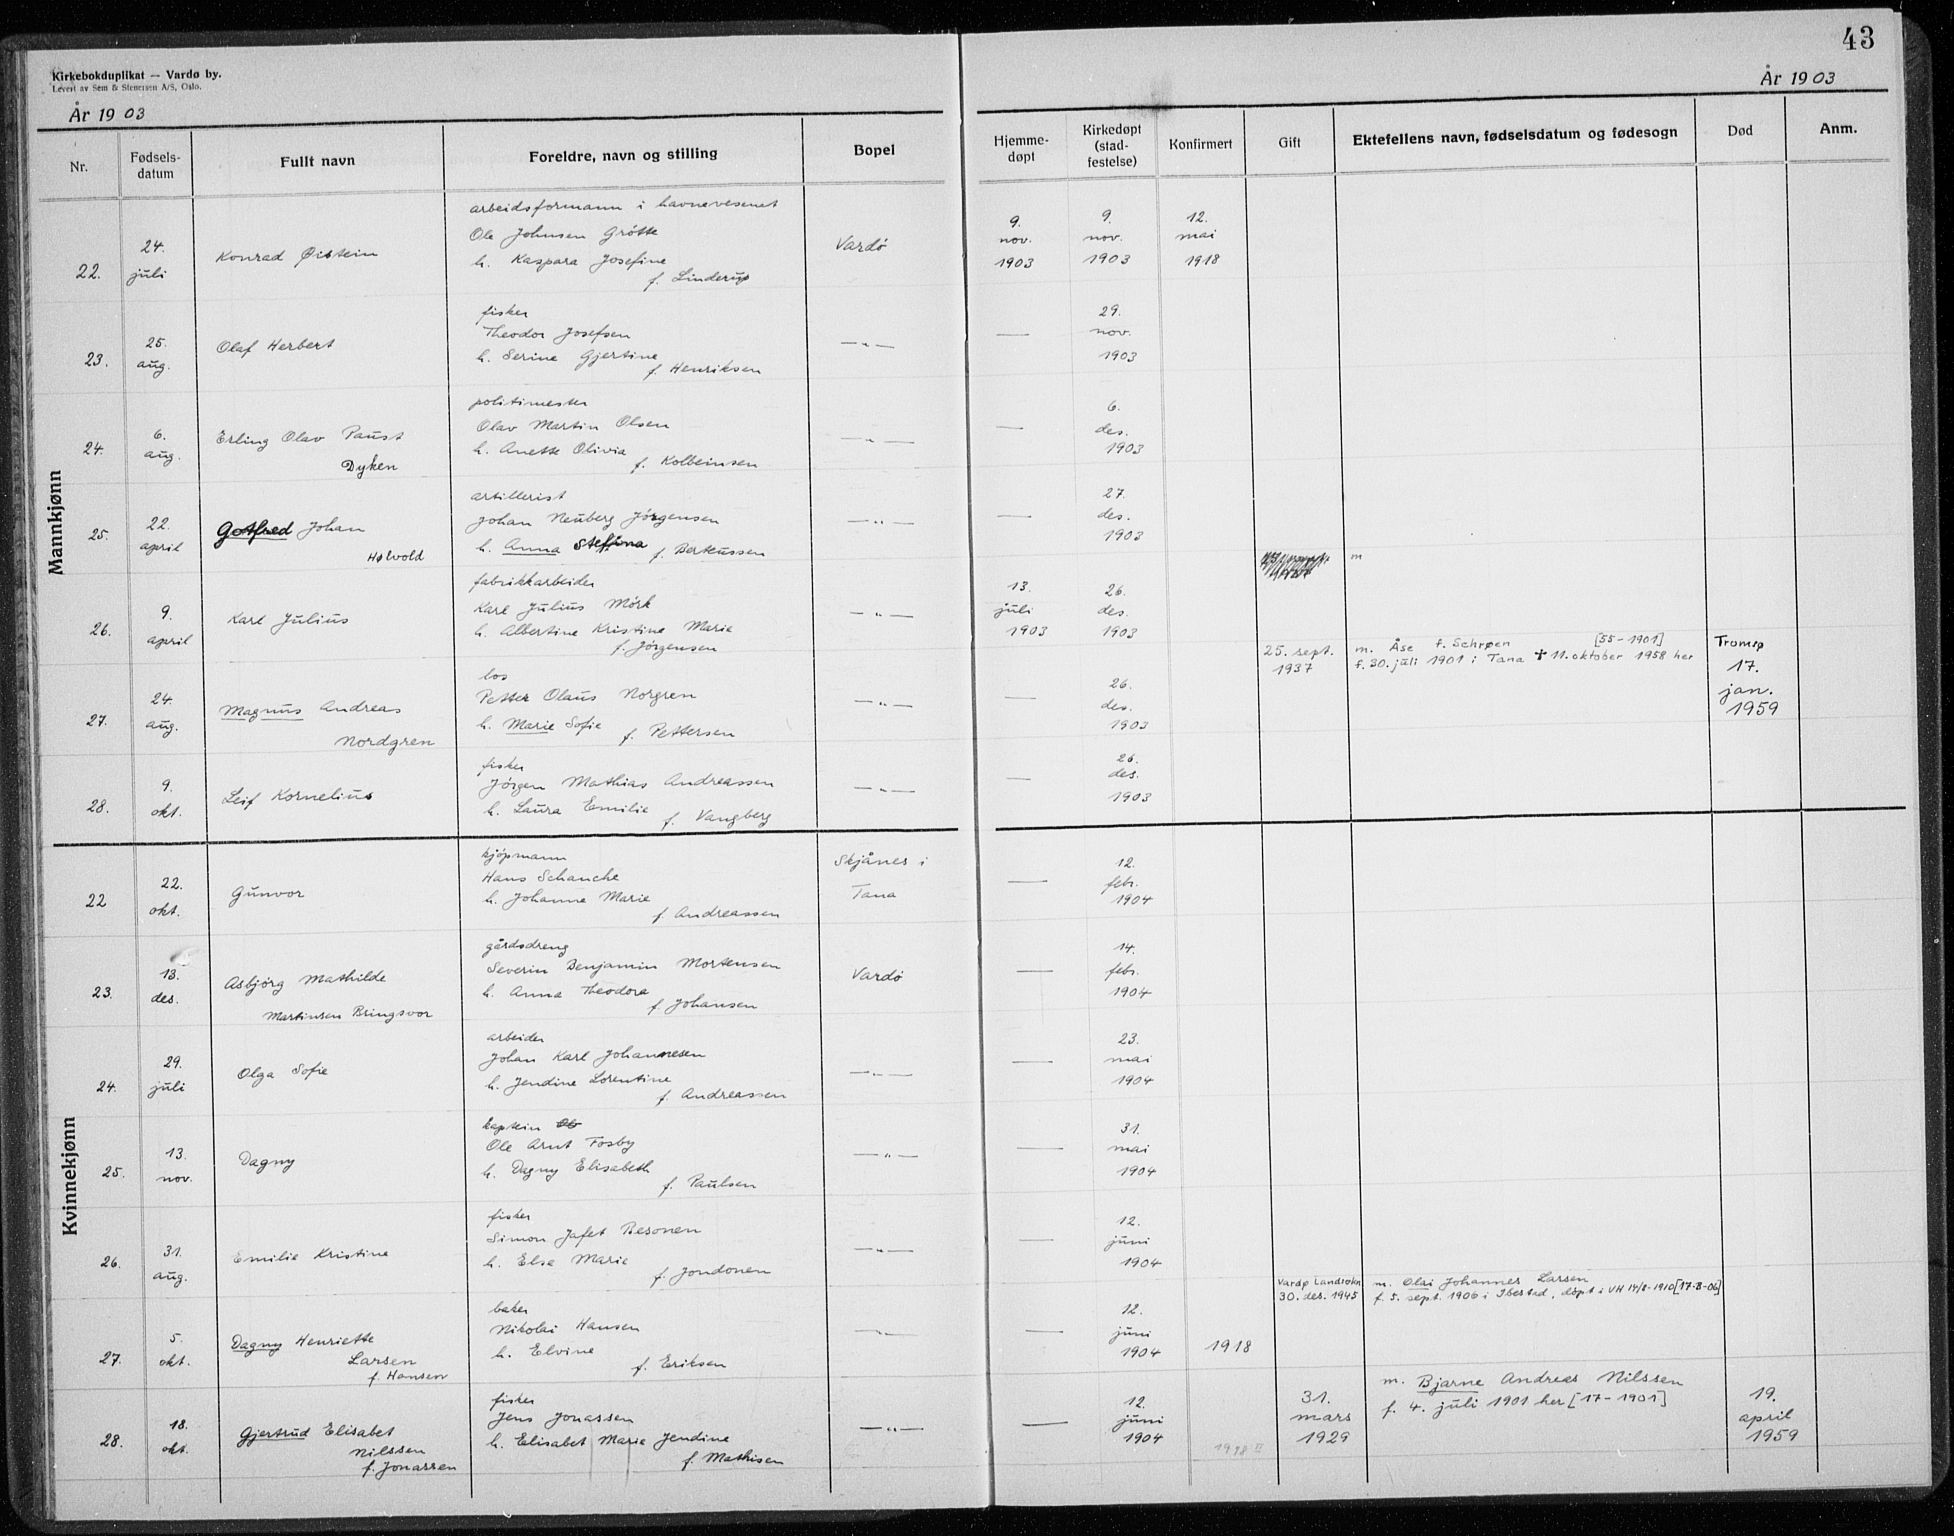 43
Kirkebokduplikat — Vardø by.
Levert av Sem & Stenersen A/S, Oslo.
År 1903
År 1903
Nr. Fødsels-datum Fullt navn Foreldre, navn og stilling Bopel Hjemme-døpt Kirkedøpt (stad-festelse) Konfirmert Gift Ektefellens navn, fødselsdatum og fødesogn Død Anm.
Mannkjønn
arbeidsformann i havnevesenet
24. Ole Johnsen Grötte Vardö 9. 9. 12.
Konrad Øistein nov. nov. mai
22. juli h. Kaspara Josefine 1903 1903 1918
f. Linderup
fisker 29.
25. Olaf Herbert Theodor Josefsen —„— — nov.
23. aug. h. Serine Gjertine 1903
f. Henriksen
politimester 6.
6. Erling Olav Paust Olav Martin Olsen —„— — des.
24. aug. Dyken h. Anette Olivia f. Kolbeinsen 1903
artillerist 27.
22. Gotfred Johan Johan Neuberg Jørgensen —„— — des.
25. april Holvold h. Anna Steffina f. Berteussen 1903
m
fabrikkarbeider 13. 26.
9. Karl Julius Karl Julius Mörk —„— juli des.
26. april h. Albertine Kristine Marie 1903 1903
f. Jørgensen
25. sept. m. Åse f. Schrøen [55-1901] Tromsø
1937 f. 30. juli 1901 i Tana † 11. oktober 1958 her 17.
los 26. jan.
24. Magnus Andreas Petter Olaus Norgren —„— — des. 1959
27. aug. Nordgren h. Marie Sofie f. Pettersen 1903
fisker 26.
9. Leif Kornelius Jörgen Mathias Andreassen —„— — des.
28. okt. h. Laura Emilie f. Vangberg 1903
Kvinnekjønn
kjöpmann Skjånes i 12.
22. Gunvor Hans Schanche — febr.
22 okt. h. Johanne Marie Tana 1904
f. Andreassen
gårdsdreng 14.
13. Asbjörg Mathilde Severin Benjamin Mortensen Vardö — febr.
23. des. h. Anna Theodora 1904
Martinsen Bringsvor f. Johansen
arbeider 23.
29. Olga Sofie Johan Karl Johannesen —„— — mai
24. juli h. Jendine Lorentine 1904
f. Andreassen
kaptein Ole 31.
13. Dagny Ole Arnt Fosby —„— — mai
25. nov. h. Dagny Elisabeth 1904
f. Paulsen
fisker 12.
31. Emilie Kristine Simon Jafet Besonen —„— — juni
26. aug. h. Else Marie 1904
f. Jondonen
Vardø Landsokn m. Olai Johannes Larsen
30. des. 1945 f. 5. sept. 1906 i Ibestad, døpt i VH 14/8-1910 [17-B-06]
baker 12.
5. Dagny Henriette Nikolai Hansen —„— — juni
27. okt. Larsen h. Elvine 1904 1918
f. Hansen f. Eriksen
m. Bjarne Andreas Nilssen
fisker 12. 31. f. 4. juli 1901 her [17-1901] 19.
18. Gjertrud Elisabet Jens Jonassen —„— — juni mars april
28. okt. Nilssen h. Elisabet Marie Jendine 1904 1918 II 1929 1959
f. Jonassen f. Mathisen